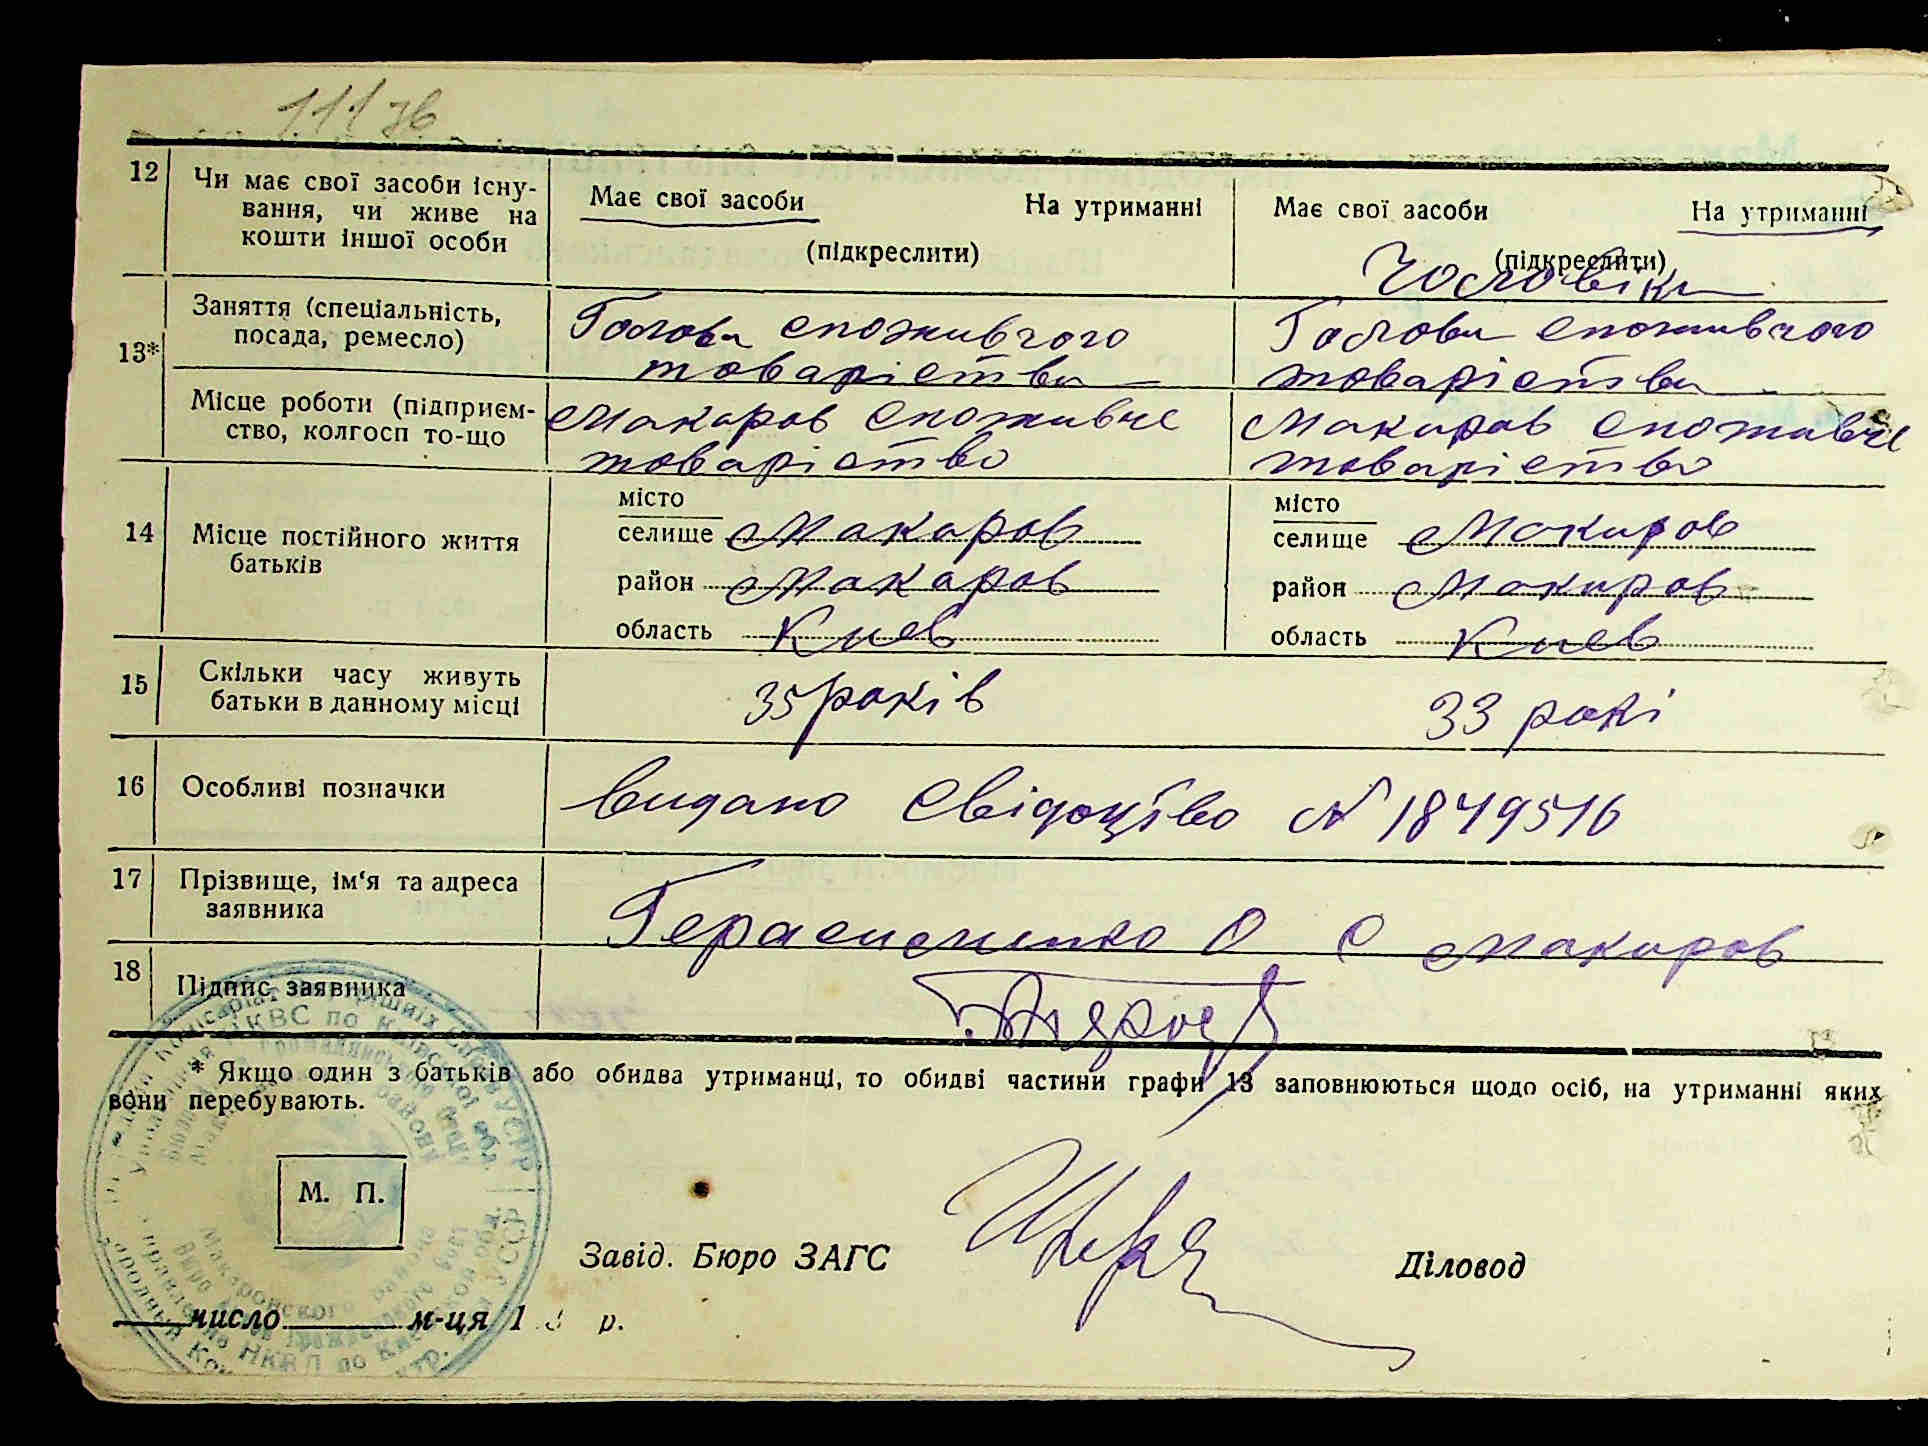 111 зв
12 Чи має свої засоби існу-
вання, чи живе на
кошти іншої особи
Має свої засоби На утриманні
(підкреслити)
Має свої засоби На утриманні
(підкреслити)
Чоловіка
13* Заняття (спеціальність,
посада, ремесло)
Голова споживчого
товаріства
Голова споживчого
товаріства
Місце роботи (підприєм-
ство, колгосп то-що
Макаров споживче
товаріство
Макаров споживче
товаріство
14 Місце постійного життя
батьків
місто
селище Макаров
район Макаров
область Киев
місто
селище Макаров
район Макаров
область Киев
15 Скільки часу живуть
батьки в данному місці
35 років
33 рокі
16 Особливі позначки
видано свідоцтво N 1849516
17 Прізвище, ім'я та адреса
заявника
Герасименко О С Макаров
18 Підпис заявника
* Якщо один з батьків або обидва утриманці, то обидві частини графи 13 заповнюються щодо осіб, на утриманні яких
вони перебувають.
М. П.
Завід. Бюро ЗАГС
Діловод
число м-ця 1 3 р.